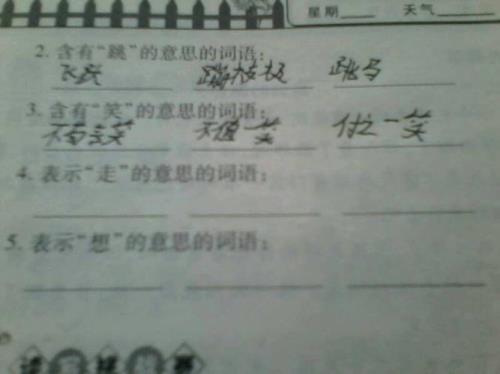 星期____ 天气____
2. 含有“跳”的意思的词语：
飞跃 蹦蹦板 跳马
3. 含有“笑”的意思的词语：
不苟言笑 不值一笑 付之一笑
4. 表示“走”的意思的词语：
5. 表示“想”的意思的词语：